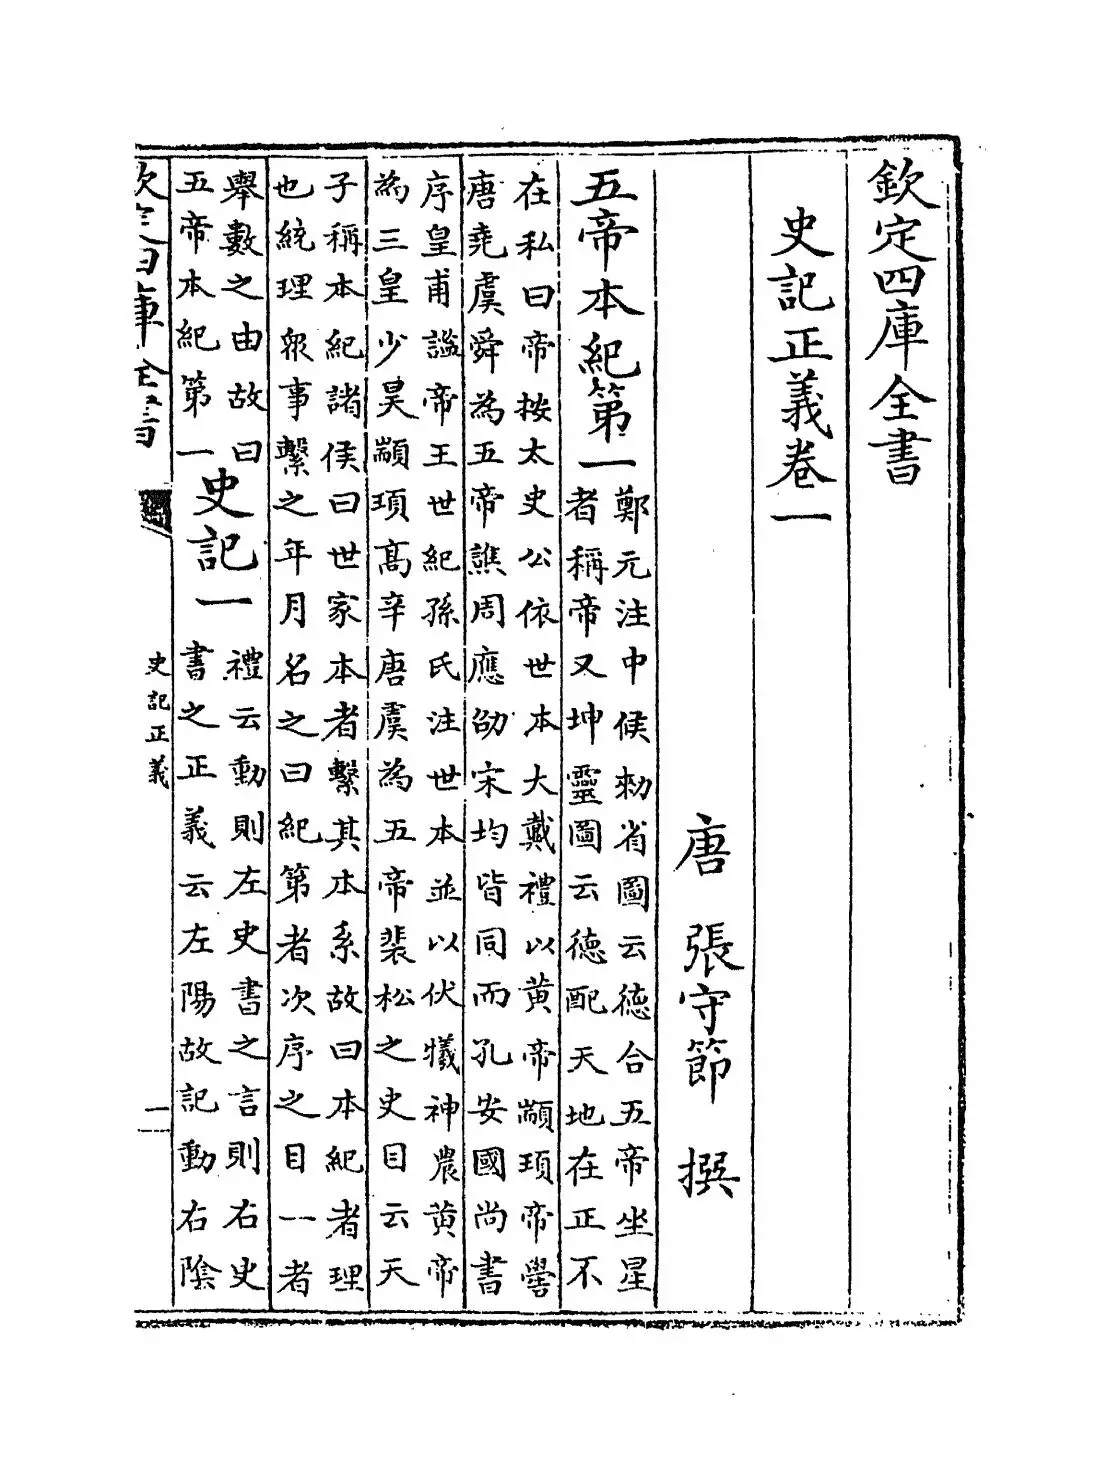 欽定四庫全書
史記正義卷一
唐 張守節 撰
五帝本紀第一
鄭元注中候勑省圖云德合五帝坐星
者稱帝又坤靈圖云德配天地在正不
在私曰帝按太史公依世本大戴禮以黄帝顓頊帝嚳
唐堯虞舜為五帝譙周應劭宋均皆同而孔安國尚書
序皇甫謐帝王世紀孫氏注世本並以伏犧神農黄帝
為三皇少昊顓頊髙辛唐虞為五帝裴松之史目云天
子稱本紀諸侯曰世家本者繫其本系故曰本紀者理
也統理衆事繫之年月名之曰紀第者次序之目一者
舉數之由故曰
五帝本紀第一
史記一
禮云動則左史書之言則右史
書之正義云左陽故記動右隂
欽定四庫全書
史記正義
一